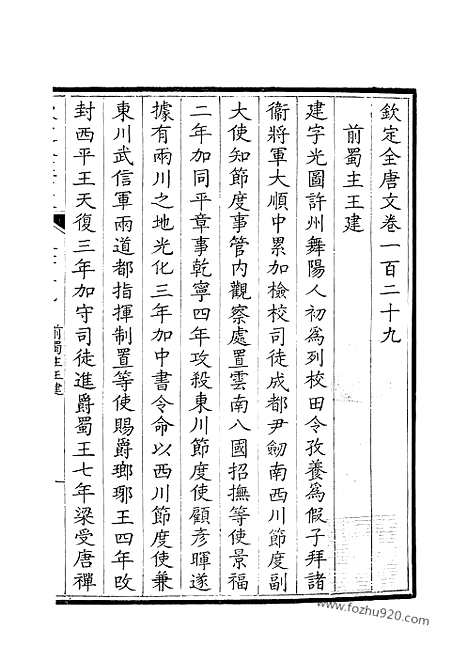 欽定全唐文卷一百二十九
前蜀主王建
建字光圖許州舞陽人初爲列校田令孜養爲假子拜諸
衞將軍大順中累加檢校司徒成都尹劒南西川節度副
大使知節度事管內觀察處置雲南八國招撫等使景福
二年加同平章事乾寧四年攻殺東川節度使顧彥暉遂
據有兩川之地光化三年加中書令命以西川節度使兼
東川武信軍兩道都指揮制置等使賜爵瑯琊王四年改
封西平王天復三年加守司徒進爵蜀王七年梁受唐禪
前蜀主王建
一
www.fozhu920.com